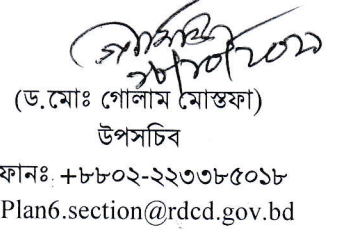 ২৮/১০/২০২১
(ড.মোঃ গোলাম মোস্তফা)
উপসচিব
ফানঃ +৮৮০২-২২৩৩৮৫০১৮
Plan6.section@rdcd.gov.bd